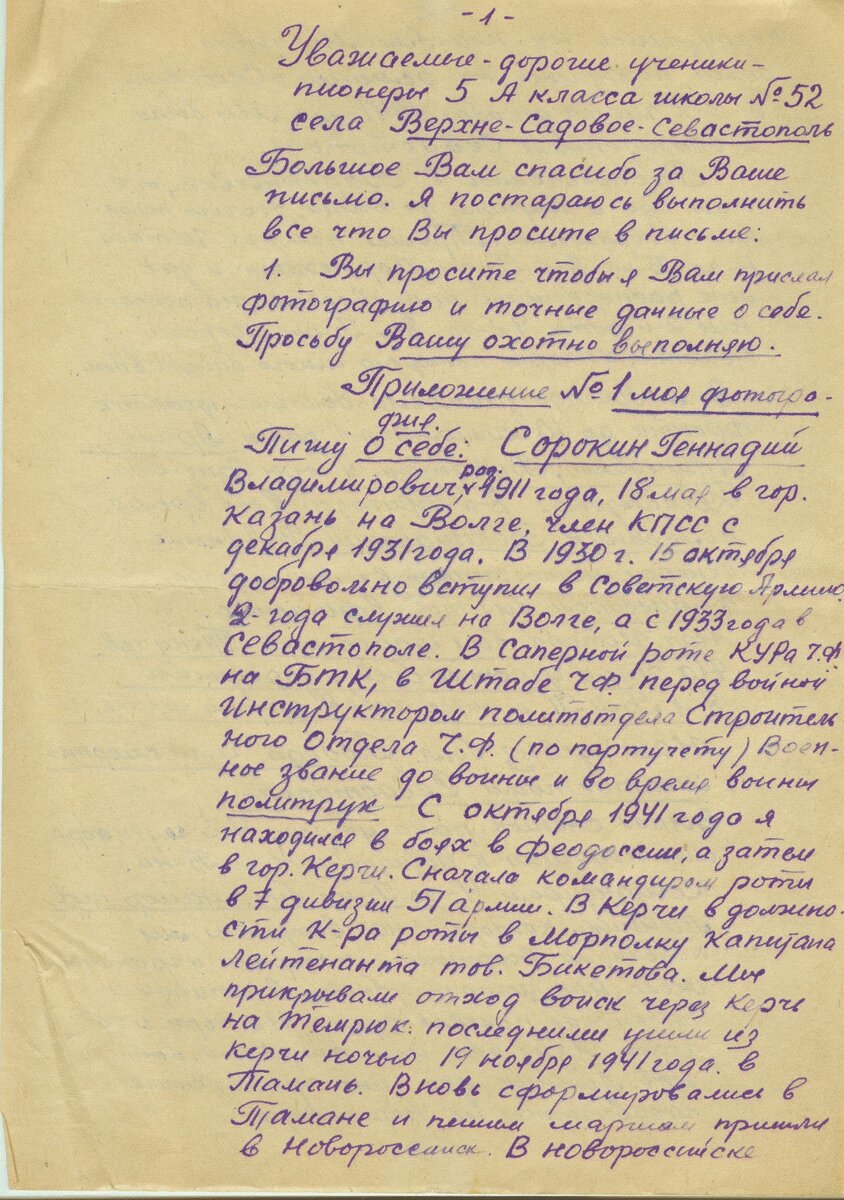 - 1 -
Уважаемые - дорогие ученики -
пионеры 5 А класса школы № 52
села Верхне-Садовое-Севастополь
Большое Вам спасибо за Ваше
письмо. Я постараюсь выполнить
все что Вы просите в письме:
1. Вы просите чтобы я Вам прислал
фотографию и точные данные о себе.
Просьбу Вашу охотно выполняю.
Приложение № 1 моя фотогра-
фия.
Пишу о себе: Сорокин Геннадий
Владимирович род. 1911 года, 18 мая в гор.
Казань на Волге, член КПСС с
декабря 1931 года. В 1930 г. 15 октября
добровольно вступил в Советскую Армию.
2-года служил на Волге, а с 1933 года в
Севастополе. В Саперной роте КУРа Ч.Ф.
на БТК, в Штабе Ч.Ф. перед войной
инструктором политотдела Строитель
ного Отдела Ч.Ф. (по партучету) Воен-
ное звание до войны и во время войны
политрук С октября 1941 года я
находился в боях в Феодоссии, а затем
в гор. Керчи. Сначала командиром роты
в 7 дивизии 51 армии. В Керчи в должно-
сти К-ра роты в Морполку Капитана
лейтенанта тов. Бикетова. Мы
прикрывали отход войск через Керчь
на Темрюк. последними ушли из
Керчи ночью 19 ноября 1941 года. в
Тамань. Вновь сформировались в
Тамане и пешим маршам пришли
в Новороссииск. В новороссийске